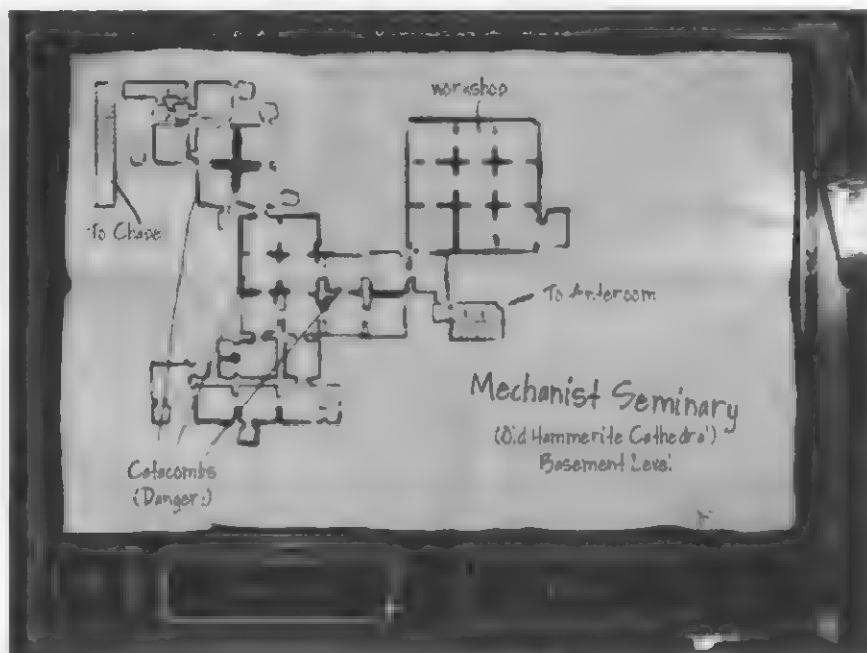 workshop
To Chape
To Anteroom
Mechanist Seminary
(Old Hammerite Cathedral)
Basement Level
Catacombs
(Danger!)